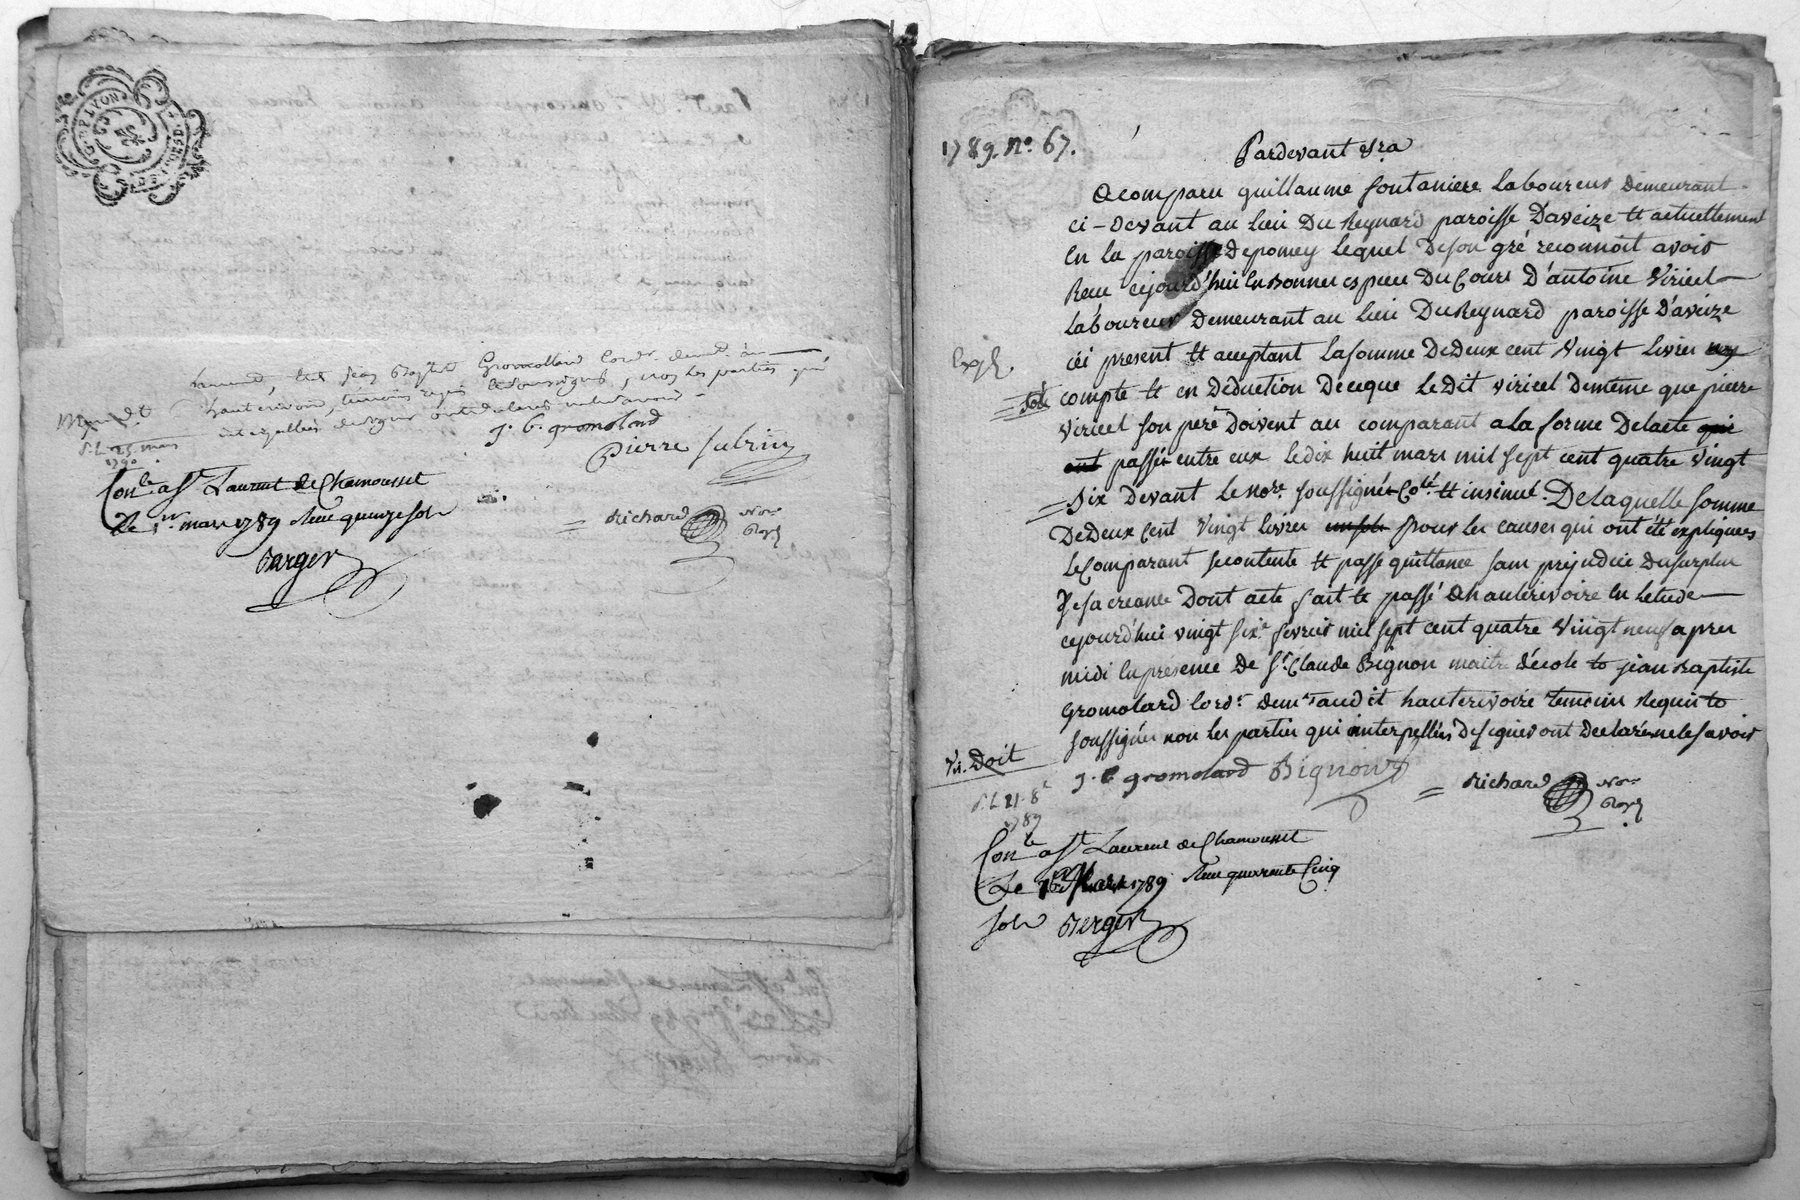 G. DE LYON
hauterivoire, temoins requis et soussignés, non les parties qui
interpellées de signer ont declaré ne le savoir
J. B. gromolard
Pierre
S.L. 25 mars
1790
Con.lé a St Laurent de Chamousset
Le 1er mars 1789 Reçu quinze sols
Barger
Richard No.re
Royal
1789. No. 67.
Pardevant &ra
A comparu guillaume fontaniere Laboureur Demeurant
ci-devant au lieu Du Reynard paroisse D'aveize et actuellement
En la paroisse De pomey Lequel De son gré reconnoit avoir
Receu cejourd'hui En Bonnes especes Du Cours D'antoine Viricel
Laboureur Demeurant au lieu Du Reynard paroisse D'aveize
ici present et acceptant La somme De Deux cent Vingt Livres
Expé
compte et en Déduction De ce que Le Dit viricel De même que pierre
viricel son pere Doivent au comparant a La forme De L'acte qui
ont passés entre eux Le dix huit mars mil sept cent quatre Vingt
Six Devant Le no.re soussigné Co.lé et insinué. De Laquelle somme
De Deux Cent Vingt Livres un sol pour Les causes qui ont été expliquées
Le Comparant se contente et passe quittance sans prejudice Du surplus
De sa creance Dont acte fait et passé A hauterivoire En L'etude
cejourd'hui vingt six.e fevrier mil sept cent quatre Vingt neuf apres
midi En presence De Sr Claude Bignon maitre D'école et jean Baptiste
Gromolard Cord.r Dem.t audit hauterivoire temoins Requis et
soussignés non Les parties qui interpellées De signer ont Declaré ne le savoir
Vs. Doit
J. B. gromolard Bignon
Richard No.re
Royal
S.L 21. 8.e
1789
Con.lé a St Laurent de Chamousset
Le 1er Mars 1789 Reçu quarante Cinq
sols Berger